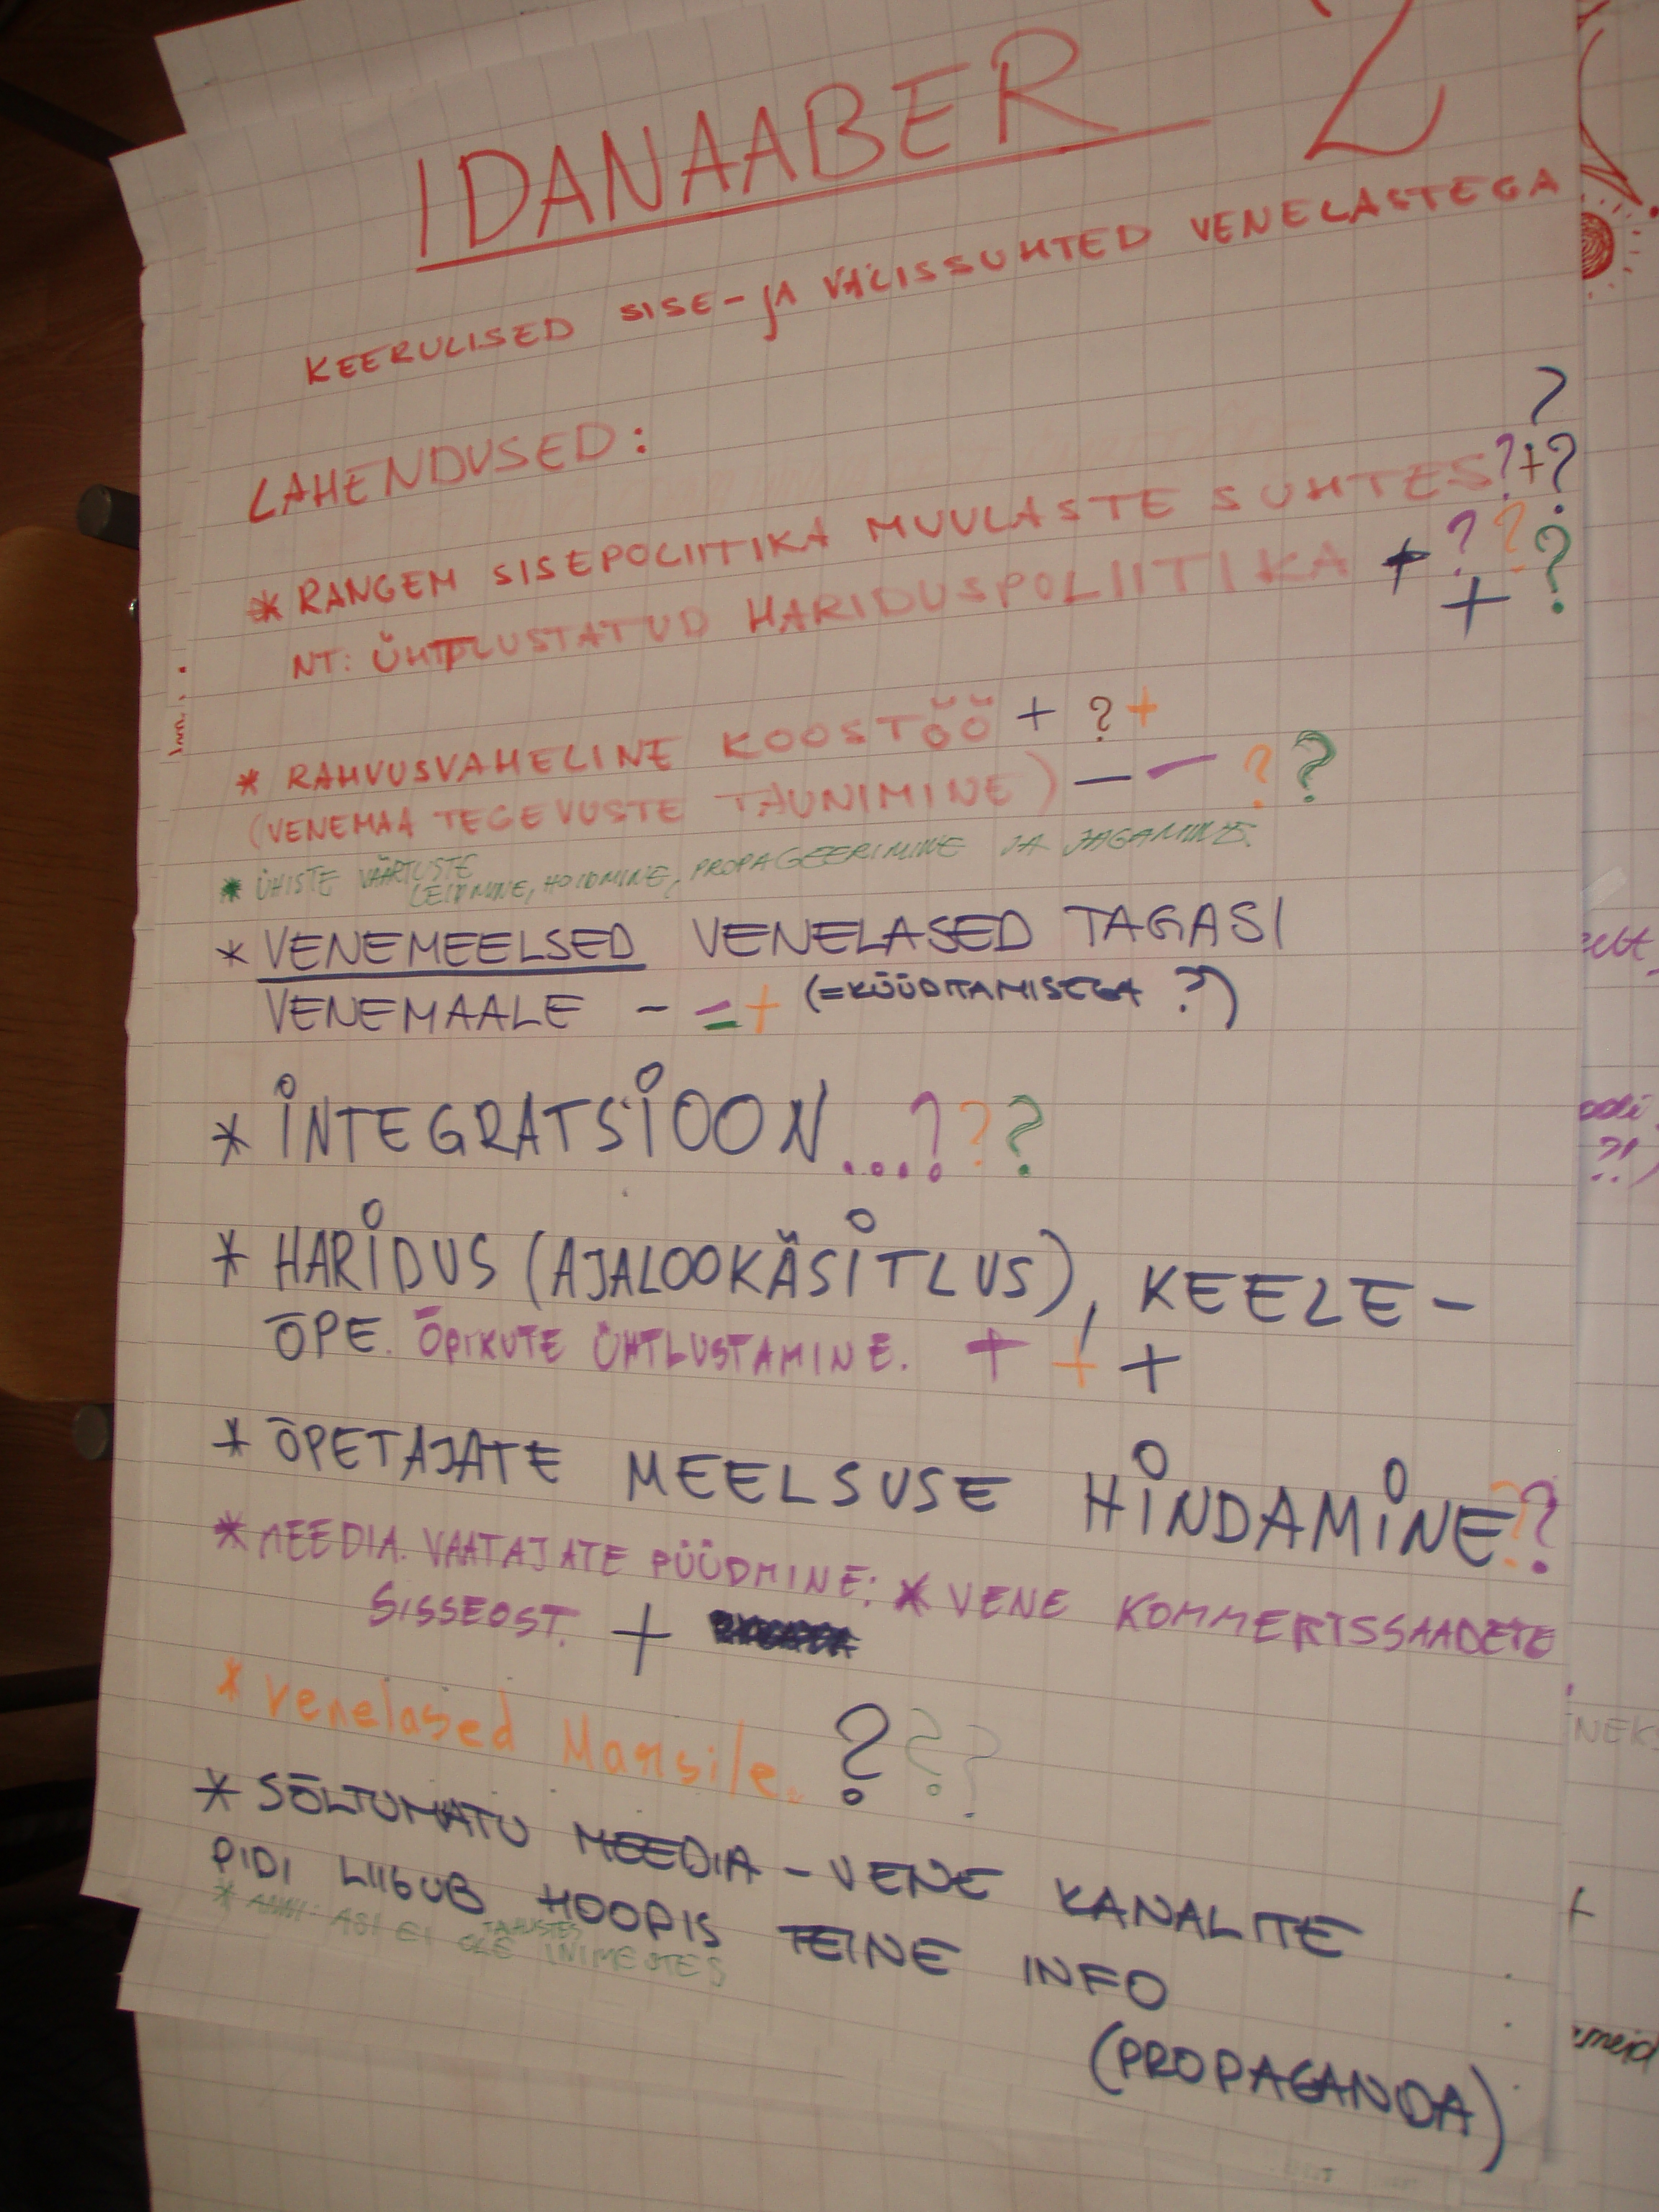 IDANAABER 2
KEERULISED SISE-JA VÄLISSUHTED VENELASTEGA
LAHENDUSED: ?
* RANGEM SISEPOLIITIKA MUULASTE SUHTES ?+?
NT: ÜHTLUSTATUD HARIDUSPOLIITIKA + ? ? ?
+
* RAHVUSVAHELINE KOOSTÖÖ + ? +
(VENEMAA TEGEVUSTE TAUNIMINE) — — ? ?
* ÜHISTE VÄÄRTUSTE
LEIDMINE, HOIDMINE, PROPAGEERIMINE JA JAGAMINE.
* VENEMEELSED VENELASED TAGASI
VENEMAALE - - - + (=KÜÜDITAMISEGA ?)
* INTEGRATSIOON...? ? ?
* HARIDUS (AJALOOKÄSITLUS), KEELE-
ÕPE. ÕPIKUTE ÜHTLUSTAMINE. + + +
* ÕPETAJATE MEELSUSE HINDAMINE ? ?
* MEEDIA. VAATAJATE PÜÜDMINE: * VENE KOMMERTSSAADETE
SISSEOST. +
* Venelased Marsile. ? ? ?
* SÕLTUMATU MEEDIA - VENE KANALITE
PIDI LIIGUB HOOPIS TEINE INFO
(PROPAGANDA)
ASI EI OLE INIMESTES